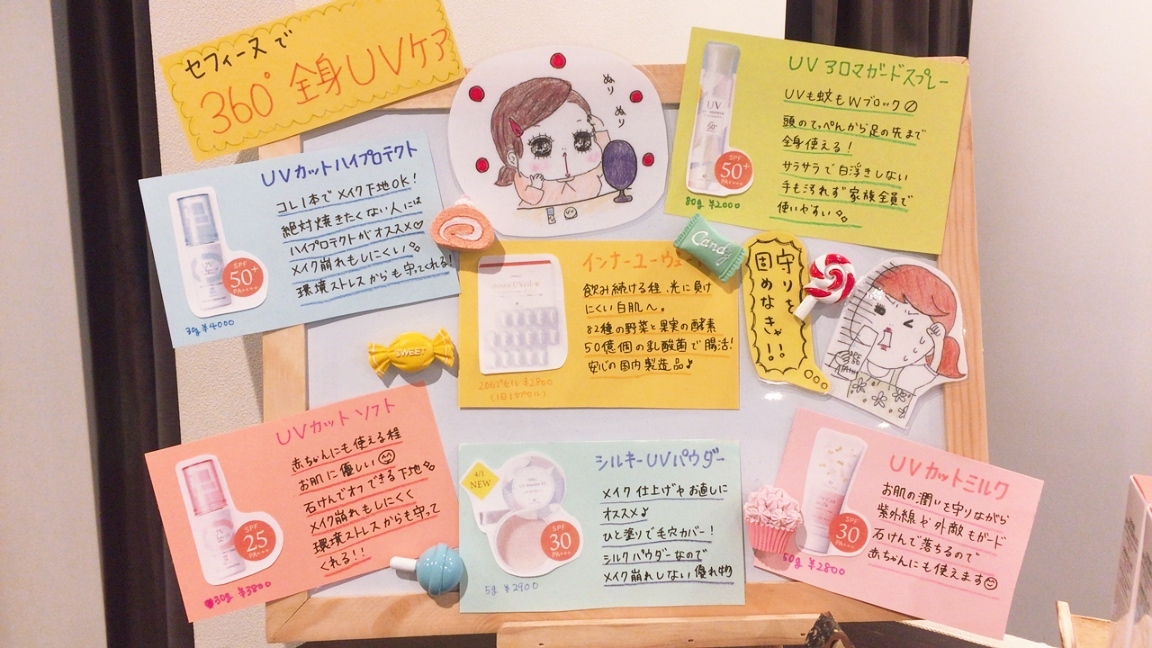 セフィーヌで
360° 全身UVケア
ぬり
ぬり
UVアロマガードスプレー
UVも蚊もWブロック
頭のてっぺんから足の先まで
全身使える!
サラサラで白浮きしない
手も汚れず家族全員で
使いやすい
UV
50+
SPF
50+
80g ¥2000
UVカットハイプロテクト
コレ1本でメイク下地OK!
絶対焼きたくない人には
ハイプロテクトがオススメ♡
メイク崩れもしにくい
環境ストレスからも守ってくれる!
SPF
50+
PA++++
30g ¥4000
インナーユーヴェ
飲み続ける程、光に負け
にくい白肌へ。
82種の野菜と果実の酵素
50億個の乳酸菌で腸活!
安心の国内製造品♪
20カプセル ¥2800
(1日1カプセル)
Candy
守りを
固めなきゃ!!
SWEET
UVカットソフト
赤ちゃんにも使える程
お肌に優しい
石けんでオフできる下地
メイク崩れもしにくく
環境ストレスからも守って
くれる!!
SPF
25
PA++
30g ¥3800
シルキーUVパウダー
4/1
NEW
メイク仕上げやお直しに
オススメ♪
ひと塗りで毛穴カバー!
シルクパウダーなので
メイク崩れしない優れ物
SPF
30
PA+++
5g ¥2900
UVカットミルク
お肌の潤いを守りながら
紫外線や外敵もガード
石けんで落ちるので
赤ちゃんにも使えます
SPF
30
PA+++
50g ¥2800